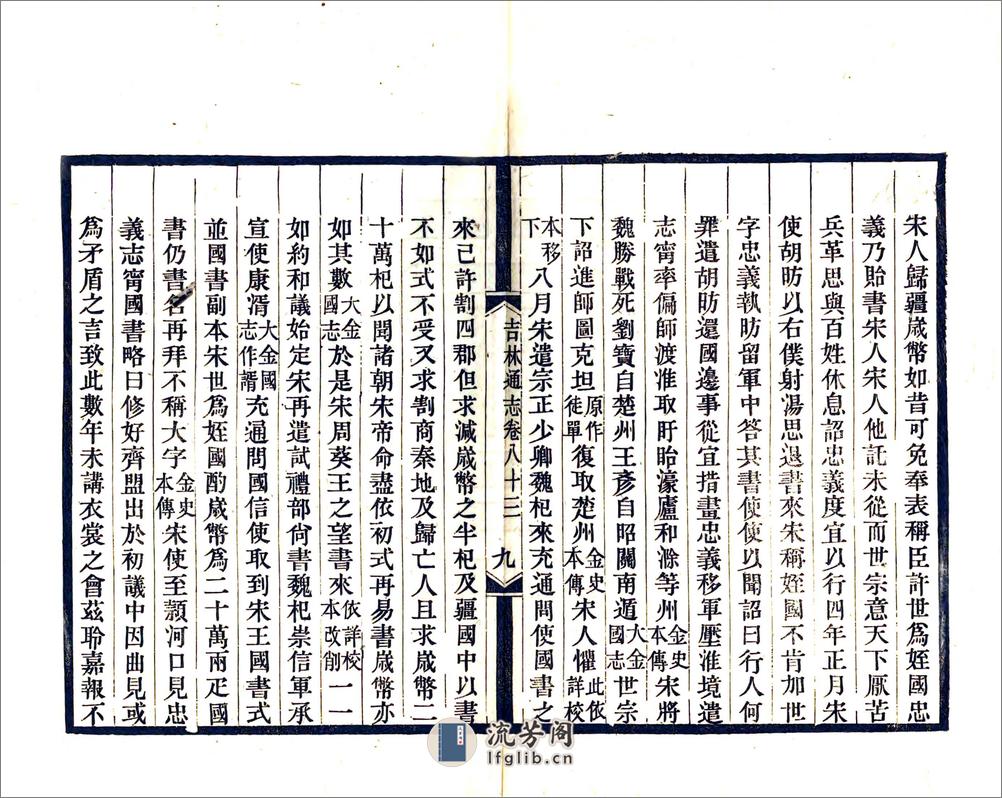 宋人歸疆歲幣如昔可免奉表稱臣許世爲姪國忠
義乃貽書宋人宋人他託未從而世宗意天下厭苦
兵革思與百姓休息詔忠義度宜以行四年正月宋
使胡昉以右僕射湯思退書來宋稱姪國不肯加世
字忠義執昉留軍中答其書使使以聞詔曰行人何
罪遣胡昉還國邊事從宜措畫忠義移軍壓淮境遣
志甯率偏師渡淮取盱眙濠廬和滁等州金史本傳宋將
魏勝戰死劉寶自楚州王彥自昭關南遁大金國志世宗
下詔進師圖克坦原作徒單復取楚州金史本傳宋人懼此依詳校
本移下八月宋遣宗正少卿魏杞來充通問使國書之
吉林通志卷八十三 九
來已許割四郡但求減歲幣之半杞及疆國中以書
不如式不受又求割商秦地及歸亡人且求歲幣二
十萬杞以聞諸朝宋帝命盡依初式再易書歲幣亦
如其數大金國志於是宋周葵王之望書來依詳校本改削一一
如約和議始定宋再遣試禮部尙書魏杞崇信軍承
宣使康湑大金國志作諝充通問國信使取到宋王國書式
並國書副本宋世爲姪國酌歲幣爲二十萬兩疋國
書仍書名再拜不稱大字金史本傳宋使至潁河口見忠
義志甯國書略曰修好齊盟出於初議中因曲見或
爲矛盾之言致此數年未講衣裳之會茲聆嘉報不
流芳阁
lfglib.cn